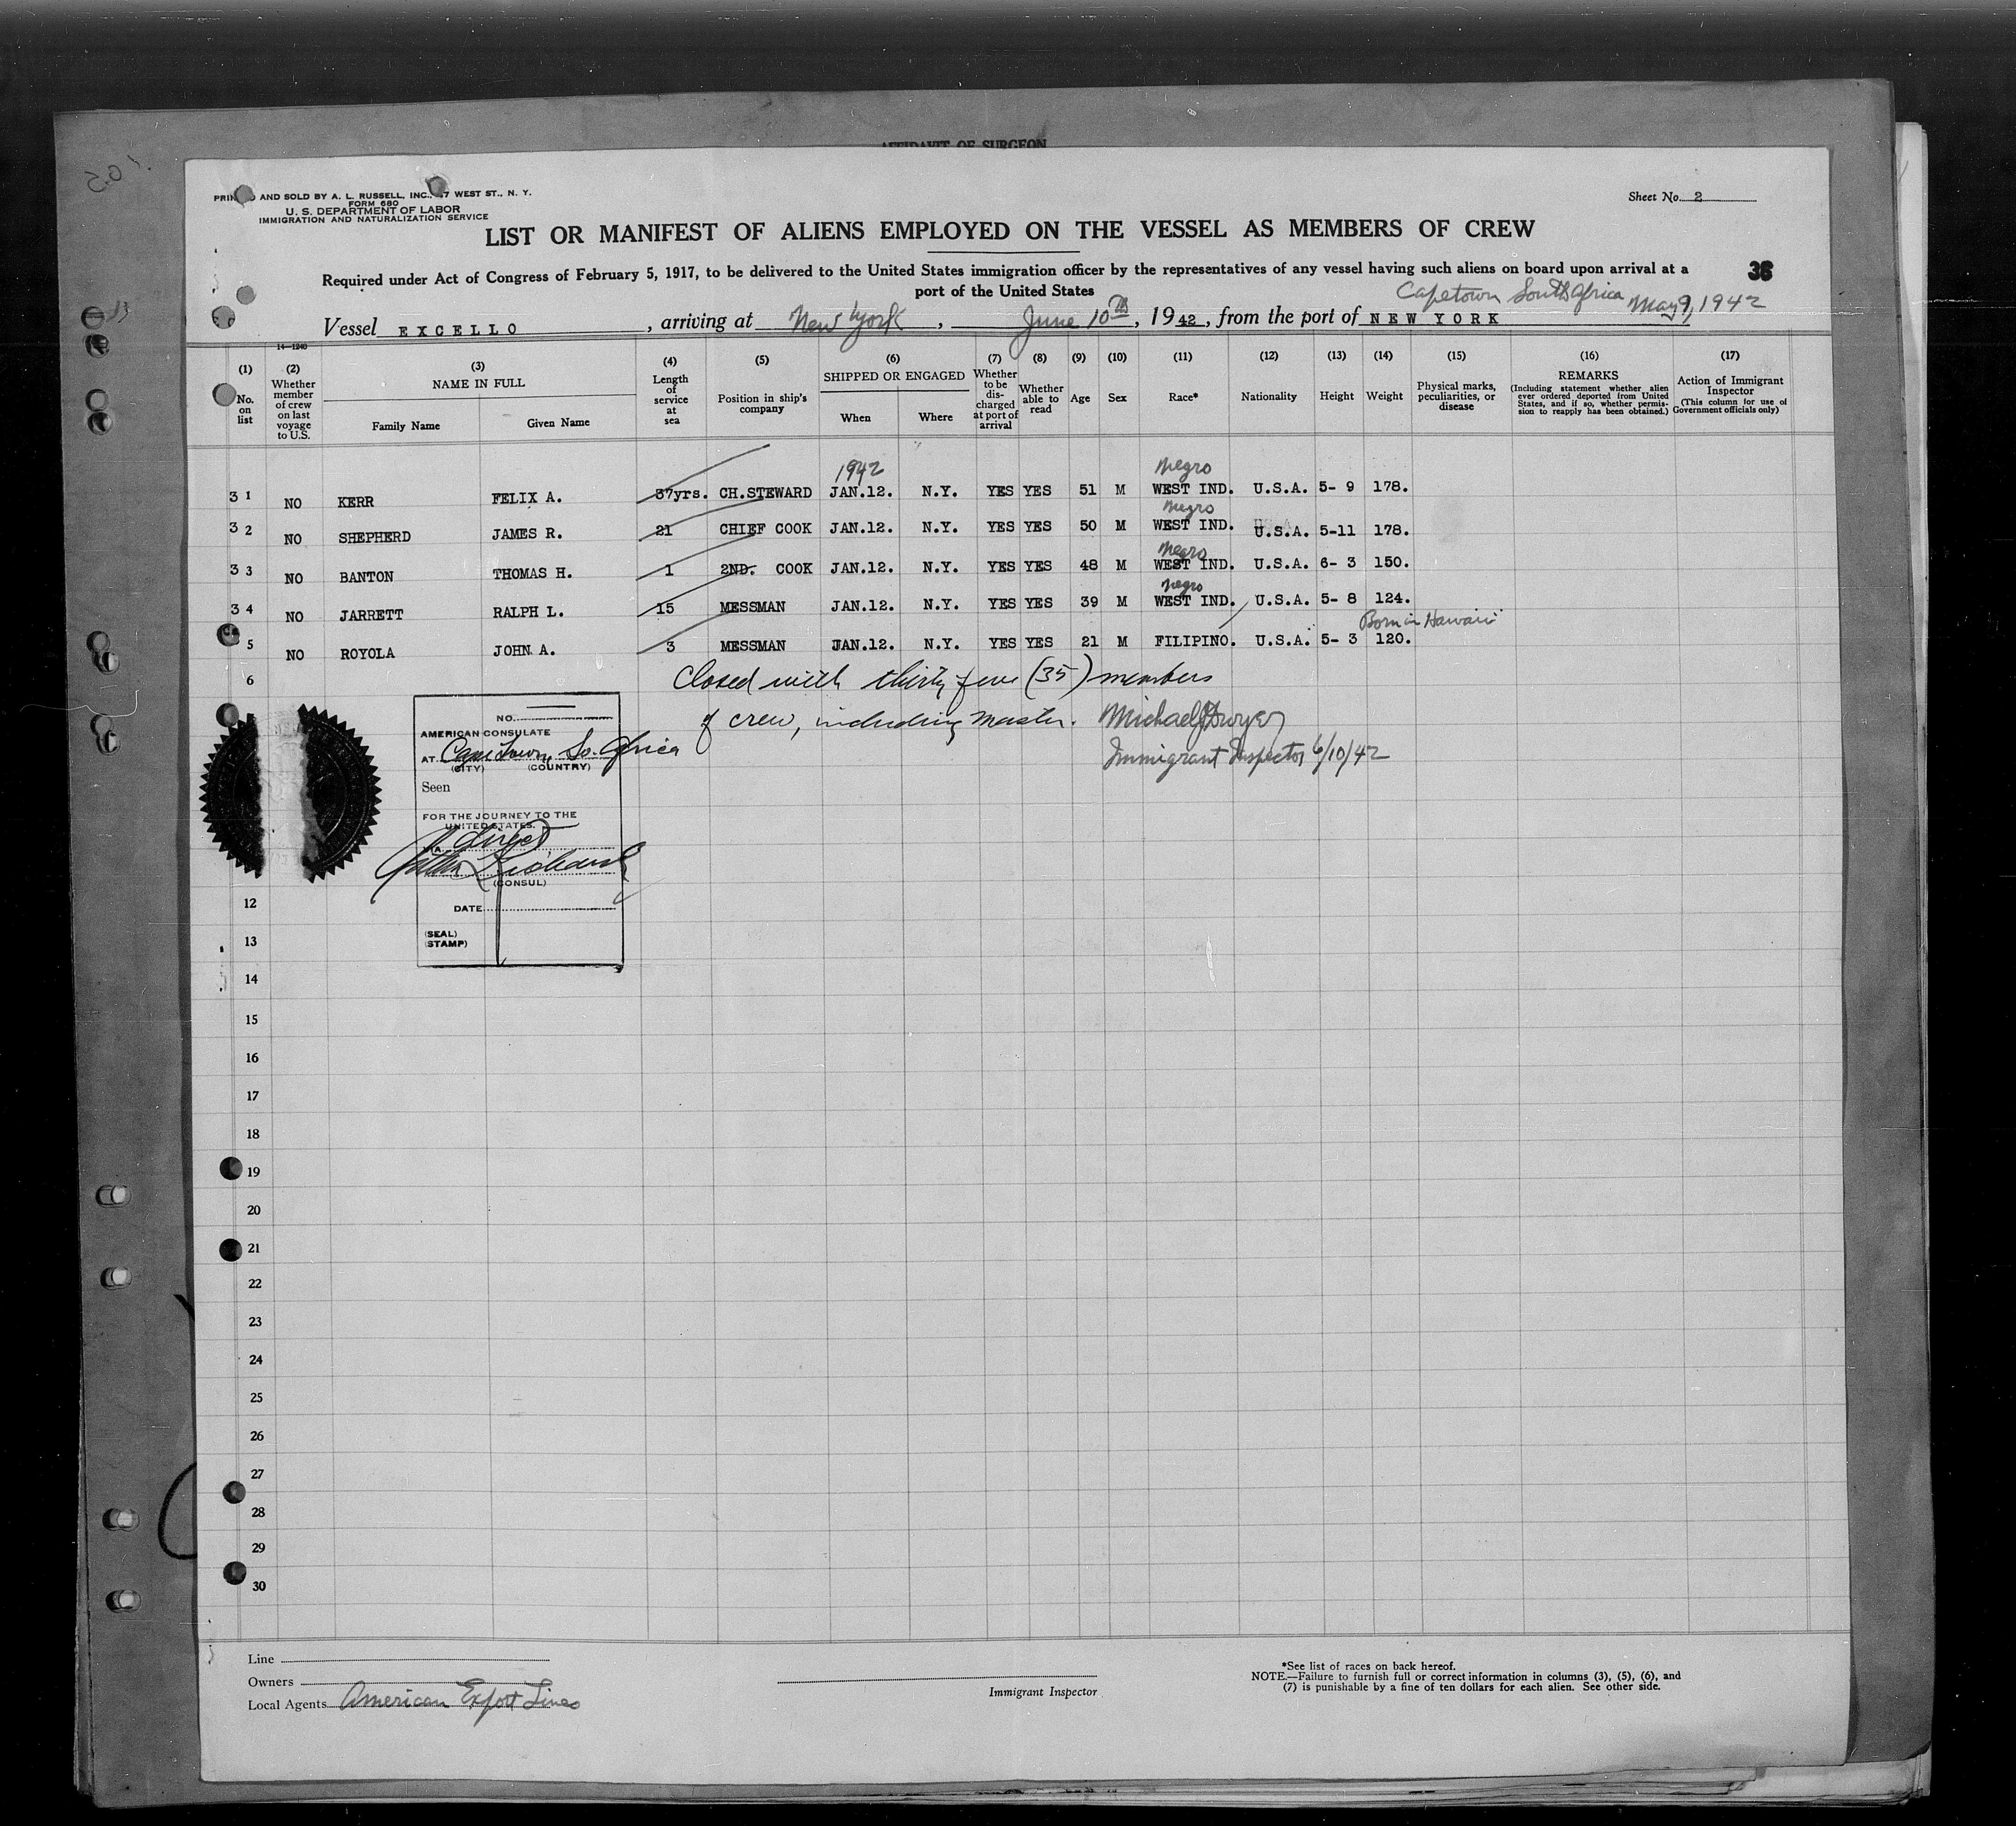 AFFIDAVIT OF SURGEON
PRINTED AND SOLD BY A. L. RUSSELL, INC., 47 WEST ST., N. Y.
FORM 680
U. S. DEPARTMENT OF LABOR
IMMIGRATION AND NATURALIZATION SERVICE
Sheet No. 2
LIST OR MANIFEST OF ALIENS EMPLOYED ON THE VESSEL AS MEMBERS OF CREW
Required under Act of Congress of February 5, 1917, to be delivered to the United States immigration officer by the representatives of any vessel having such aliens on board upon arrival at a
port of the United States
Capetown South Africa May 9, 1942
Vessel EXCELLO, arriving at New York, June 10th, 1942, from the port of NEW YORK
14-1240
(1) No. on list
(2) Whether member of crew on last voyage to U.S.
(3) NAME IN FULL
Family Name Given Name
(4) Length of service at sea
(5) Position in ship's company
(6) SHIPPED OR ENGAGED
When Where
(7) Whether to be discharged at port of arrival
(8) Whether able to read
(9) Age
(10) Sex
(11) Race*
(12) Nationality
(13) Height
(14) Weight
(15) Physical marks, peculiarities, or disease
(16) REMARKS (Including statement whether alien ever ordered deported from United States, and if so, whether permission to reapply has been obtained.)
(17) Action of Immigrant Inspector (This column for use of Government officials only)
1942 Negro
31 NO KERR FELIX A. 37yrs. CH.STEWARD JAN.12. N.Y. YES YES 51 M WEST IND. U.S.A. 5- 9 178.
Negro
32 NO SHEPHERD JAMES R. 21 CHIEF COOK JAN.12. N.Y. YES YES 50 M WEST IND. U.S.A. 5-11 178.
Negro
33 NO BANTON THOMAS H. 1 2ND. COOK JAN.12. N.Y. YES YES 48 M WEST IND. U.S.A. 6- 3 150.
Negro
34 NO JARRETT RALPH L. 15 MESSMAN JAN.12. N.Y. YES YES 39 M WEST IND. U.S.A. 5- 8 124.
Born in Hawaii
5 NO ROYOLA JOHN A. 3 MESSMAN JAN.12. N.Y. YES YES 21 M FILIPINO. U.S.A. 5- 3 120.
6
Closed with thirty five (35) members
of crew, including master. Michael J Dwyer
Immigrant Inspector 6/10/42
NO.
AMERICAN CONSULATE
AT Cape Town, So. Africa
(CITY) (COUNTRY)
Seen
FOR THE JOURNEY TO THE
UNITED STATES.
direct
(CONSUL)
DATE
(SEAL)
(STAMP)
12
13
14
15
16
17
18
19
20
21
22
23
24
25
26
27
28
29
30
Line
Owners
Local Agents American Export Lines
Immigrant Inspector
*See list of races on back hereof.
NOTE.—Failure to furnish full or correct information in columns (3), (5), (6), and
(7) is punishable by a fine of ten dollars for each alien. See other side.